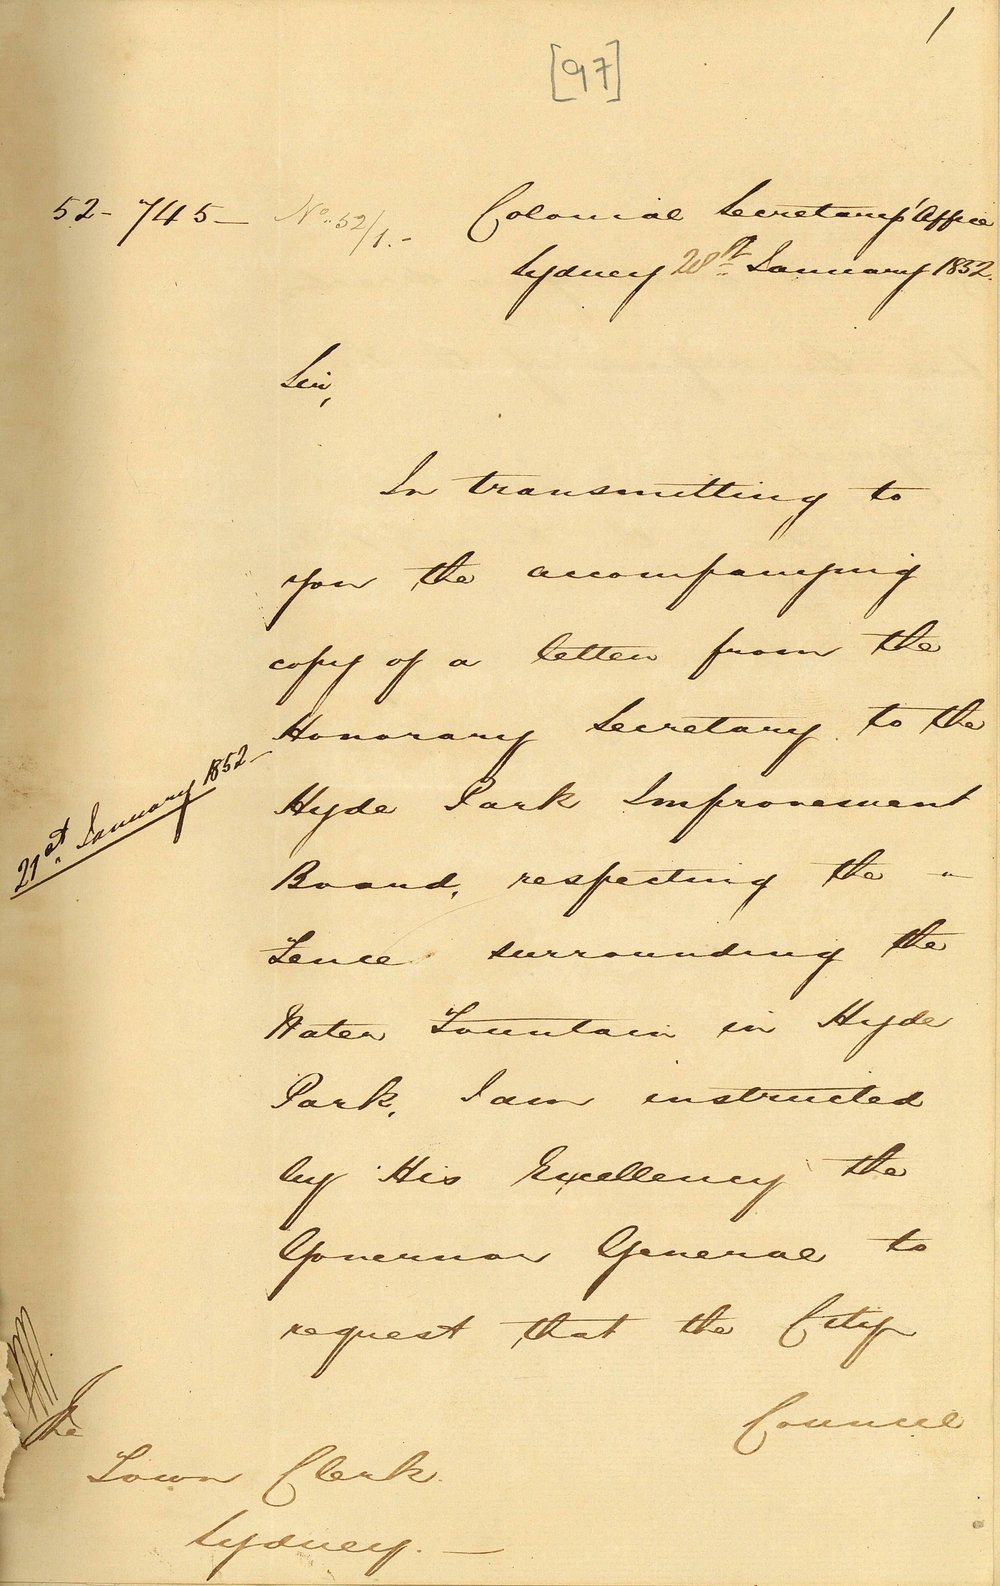 1
[97]
52-745- No. 52/1.- Colonial Secretary's Office
Sydney 28th January 1852.
Sir,
In transmitting to
you the accompanying
copy of a letter from the
Honorary Secretary to the
21st January 1852-
Hyde Park Improvement
Board, respecting the -
Fence surrounding the
Water Fountain in Hyde
Park, I am instructed
by His Excellency the
Governor General to
request that the City
Council
The
Town Clerk
Sydney. -